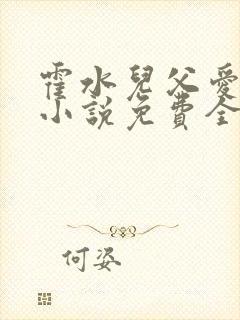 霍水兒父愛
小說免費全
何姿